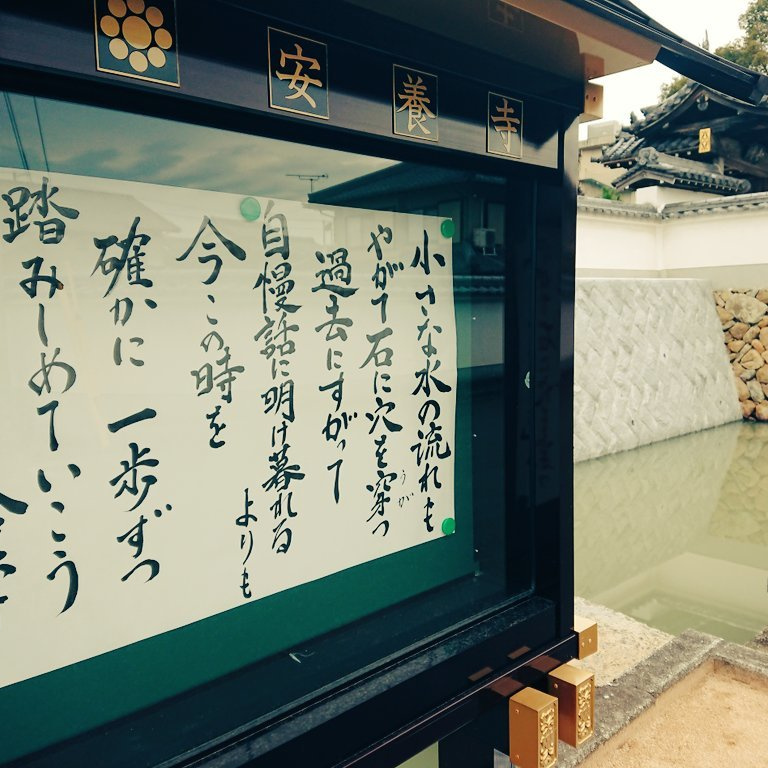 安養寺
小さな水の流れも
やがて石に穴を穿つ
うが
過去にすがって
自慢話に明け暮れる
よりも
今この時を
確かに 一歩ずつ
踏みしめていこう